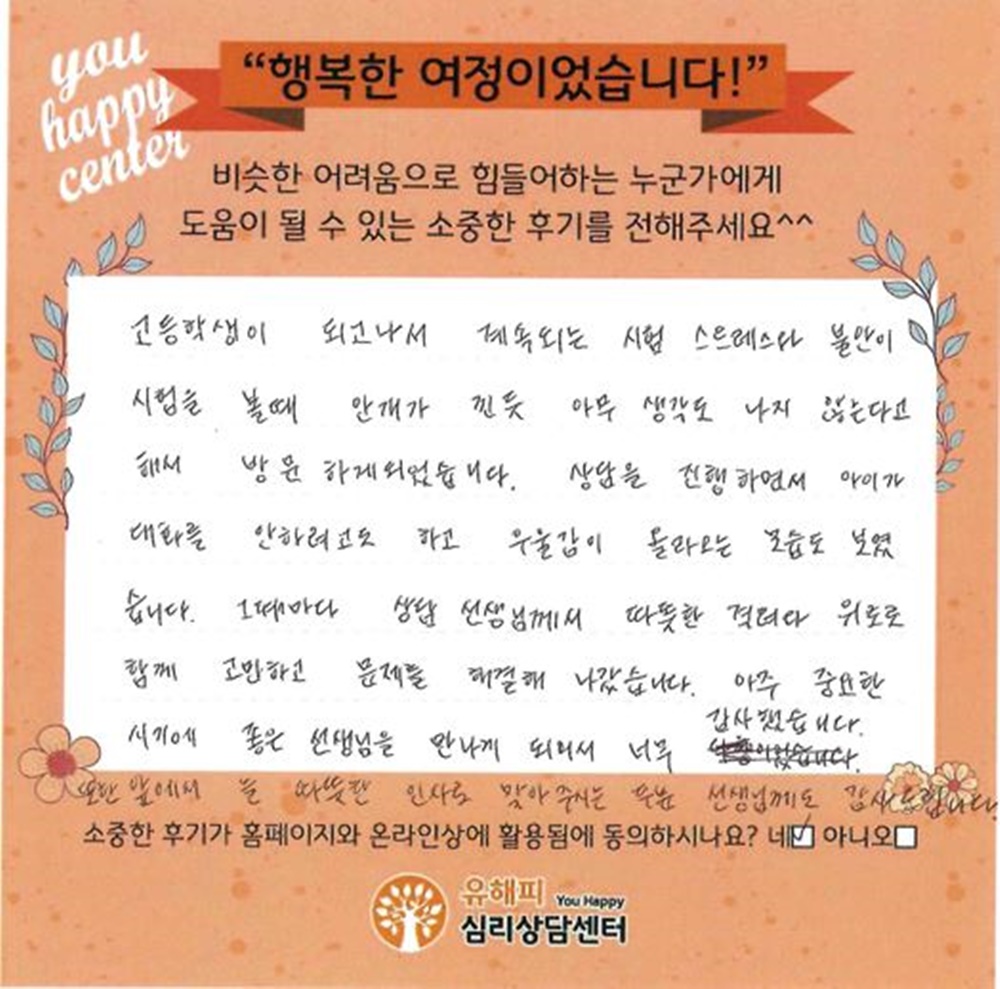 you
happy
center
“행복한 여정이었습니다!”
비슷한 어려움으로 힘들어하는 누군가에게
도움이 될 수 있는 소중한 후기를 전해주세요^^
고등학생이 되고나서 계속되는 시험 스트레스와 불안이
시험을 볼때 안개가 낀듯 아무 생각도 나지 않는다고
해서 방문 하게되었습니다. 상담을 진행하면서 아이가
대화를 안하려고도 하고 우울감이 올라오는 모습도 보였
습니다. 그때마다 상담 선생님께서 따뜻한 격려와 위로로
함께 고민하고 문제를 해결해 나갔습니다. 아주 중요한
시기에 좋은 선생님을 만나게 되어서 너무 감사했습니다.
또한 앞에서 늘 따뜻한 인사로 맞아주시는 선생님께도 감사드립니다.
소중한 후기가 홈페이지와 온라인상에 활용됨에 동의하시나요? 네☑ 아니오□
유해피 You Happy
심리상담센터